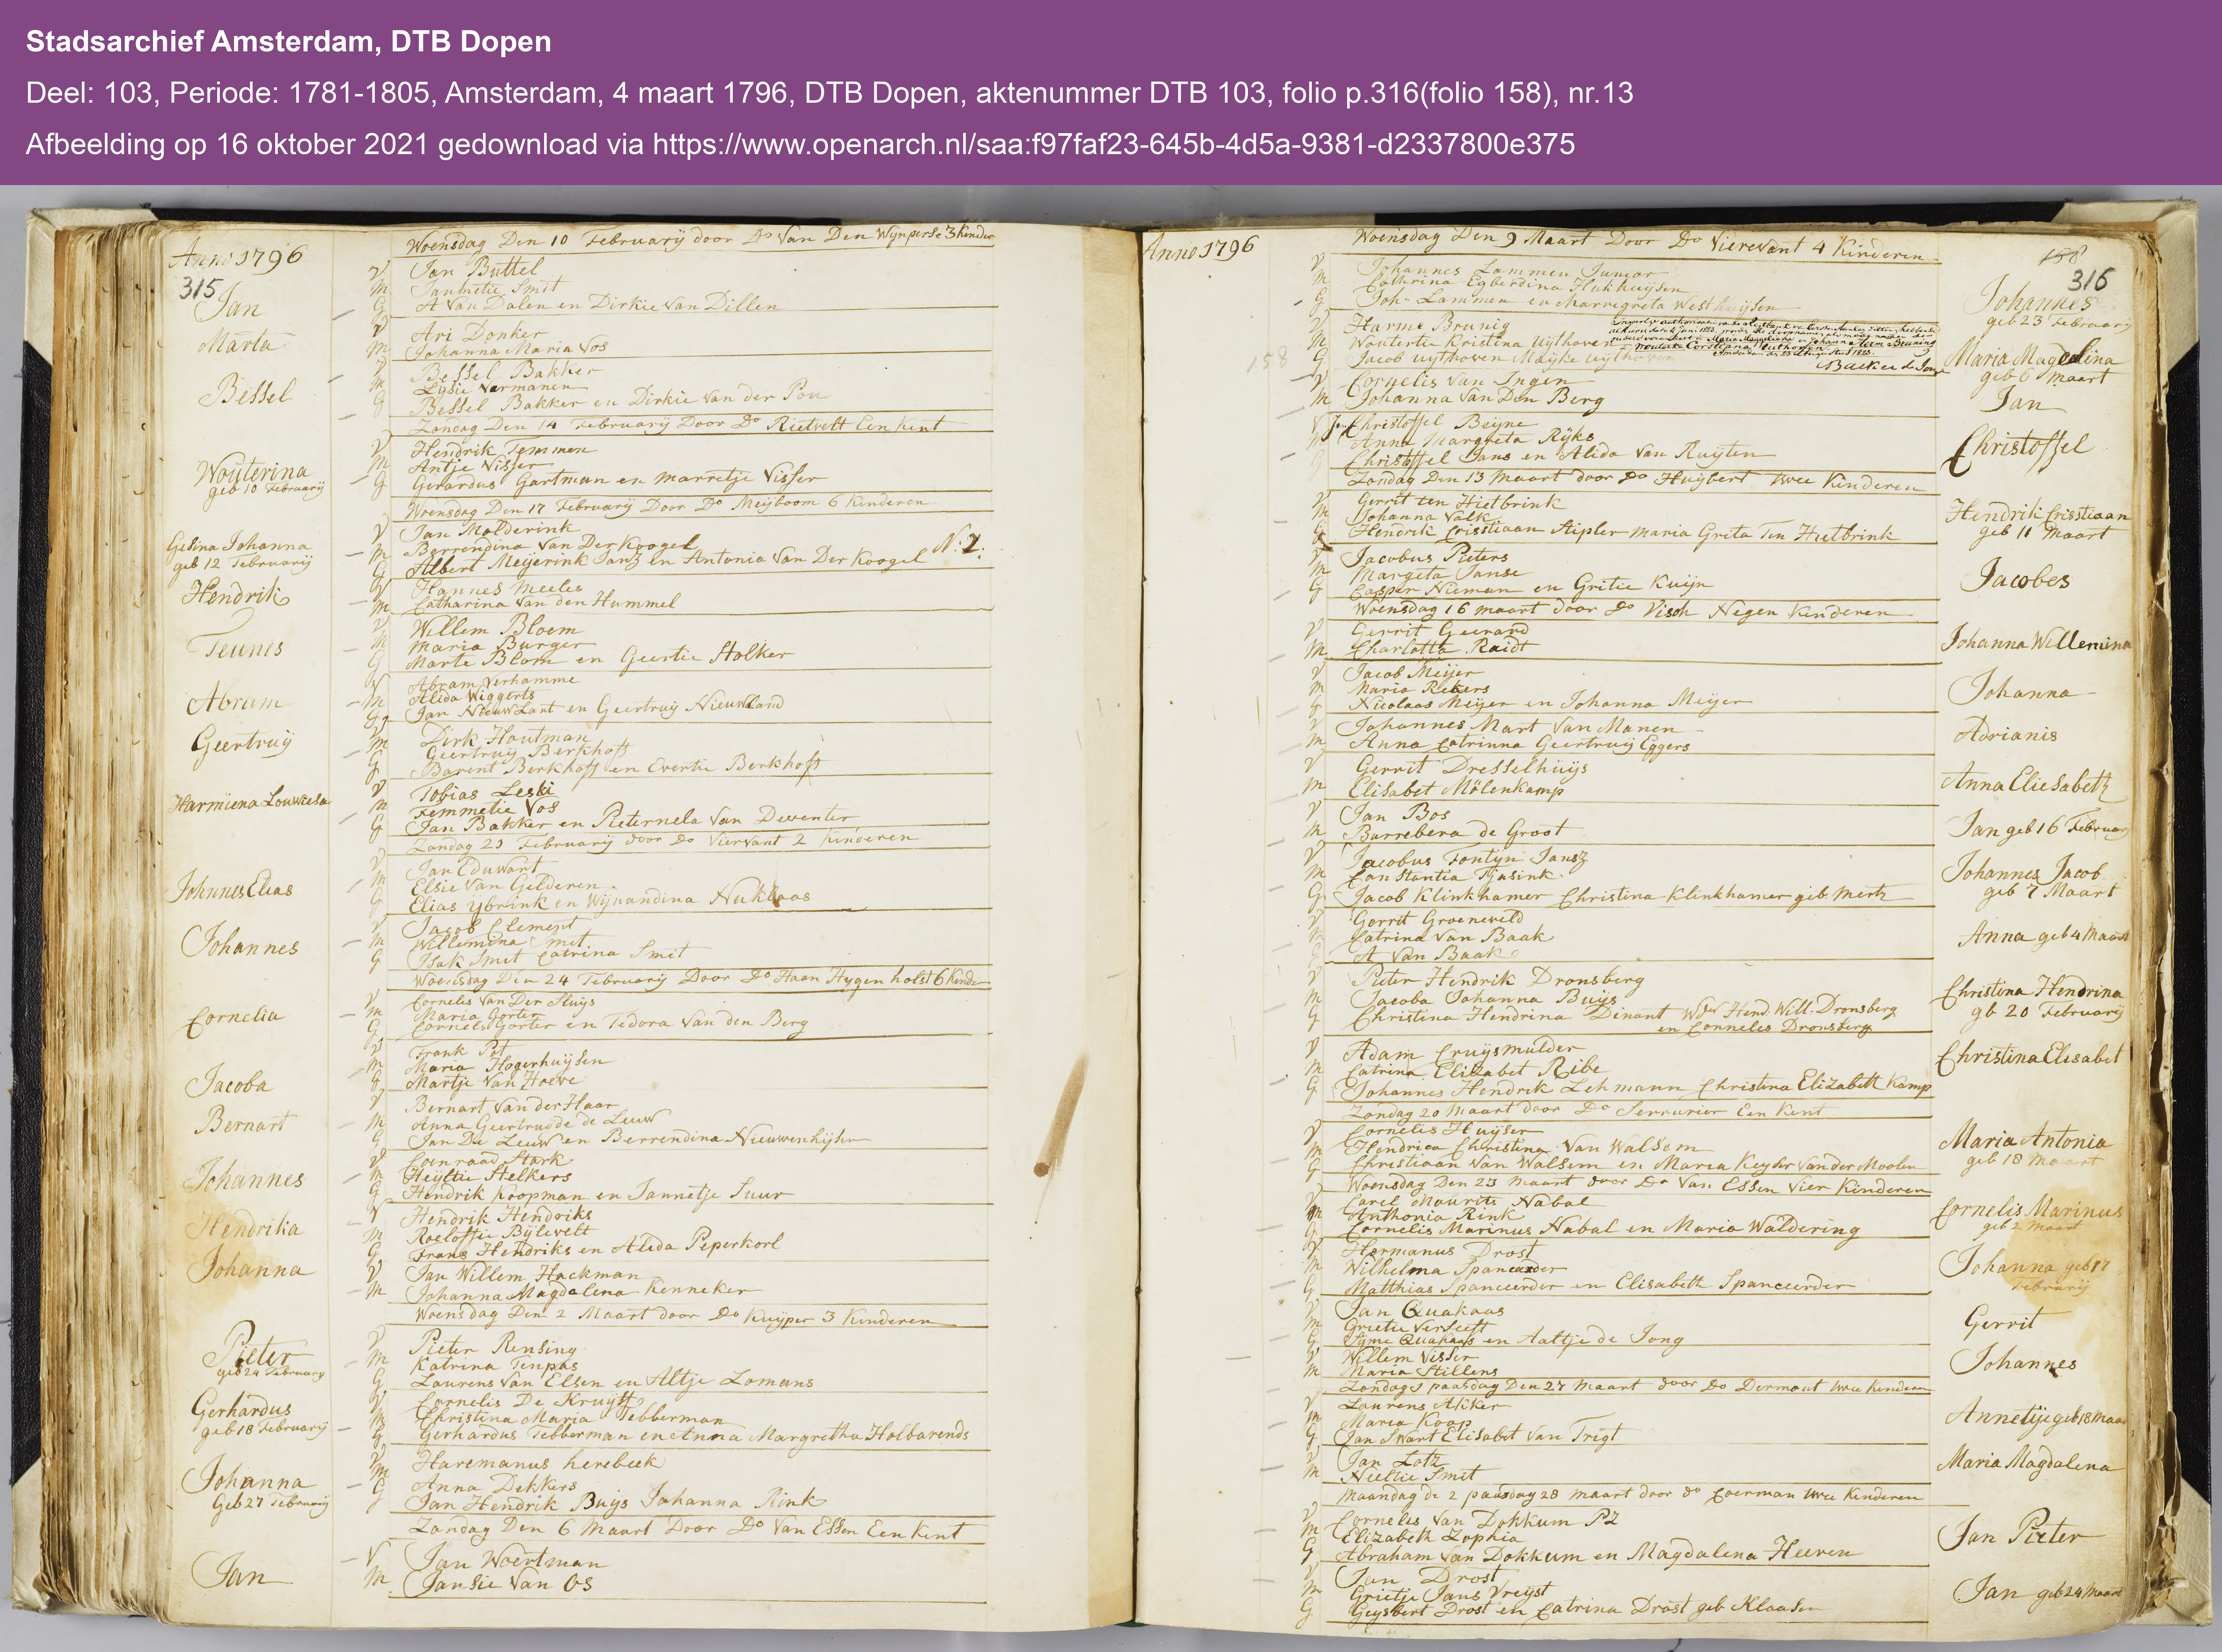 Stadsarchief Amsterdam, DTB Dopen
Deel: 103, Periode: 1781-1805, Amsterdam, 4 maart 1796, DTB Dopen, aktenummer DTB 103, folio p.316(folio 158), nr.13
Afbeelding op 16 oktober 2021 gedownload via https://www.openarch.nl/saa:f97faf23-645b-4d5a-9381-d2337800e375
Anno 1796
315
Woensdag Den 10 February door Do Van Den Wynperse 3 kinder
V Jan Buttel
M Jannetie Smit
G A Van Dalen en Dirkie van Dillen
Jan
V Ari Donker
M Johanna Maria Vos
Marta
V Bessel Bakker
M Lysie Vermanen
G Bessel Bakker en Dirkie van der Pou
Bessel
Zondag Den 14 February Door Do Rietvelt Een Kent
V Hendrik Temmen
M Antje Visser
G Gerardus Gartman en marretje Visser
Wouterina
geb 10 February
Woensdag Den 17 February Door Do Meijboom 6 Kinderen
V Jan Molderink
M Berrendina Van Der Koogel
G Albert Meijerink Janz en Antonia Van Der Koogel
Gesina Johanna
geb 12 February
V Hannes Meeles
M Catharina Van den Hummel
Hendrik
V Willem Bloem
M Maria Burger
G Marte Blom en Geertie Stolker
Teunes
V Abram Verhamme
M Alida Wiggerts
G Jan Nieuwlant en Geertruy Nieuwland
Abram
V Dirk Houtman
M Geertruy Berkhoff
G Barent Berkhoff en Evertie Berkhoff
Geertruy
V Tobias Leski
M Femmetie Vos
G Jan Bakker en Pieternela Van Deventer
Harmiena Louwiesa
Zondag 21 February door Do Viervant 2 Kinderen
V Jan Eduwart
M Elsie Van Gelderen
G Elias Ybrink en Wijnandina Nuklaas
Johnnes Elias
V Jacob Clement
M Willemina Smit
G Isak Smit Catrina Smit
Johannes
Woensdag Den 24 February Door Do Haan Hygen holst 6 Kinder
V Cornelis Van Der Sluys
M Maria Gorter
G Cornelis Gorter en Tedora Van den Berg
Cornelia
V Frank Pot
M Maria Hogerhuysen
G Martje Van Hoeve
Jacoba
V Bernart Van der Haar
M Anna Geertruyde de Leuw
G Jan De Leuw en Berrendina Nieuwenhysen
Bernart
V Coenraad Stark
M Heyltie Stelkers
G Hendrik Koopman en Jannetje Suur
Johannes
V Hendrik Hendriks
M Roeloffie Bylevelt
G Frans Hendriks en Alida Peperkorl
Hendrika
V Jan Willem Hackman
M Johanna Magdalena Kenneker
Johanna
Woensdag Den 2 Maart door Do Kuyper 3 Kinderen
V Pieter Rensing
M Katrina Tenpas
G Laurens Van Elsen en Altje Lomans
Pieter
geb 24 February
V Cornelis De Kruyff
M Christina Maria Tebberman
G Gerhardus Tebberman en Anna Margretha Holbarends
Gerhardus
geb 18 February
V Haremanus Lerebeek
M Anna Dekkers
G Jan Hendrik Buys Johanna Rink
Johanna
Geb 27 February
Zondag Den 6 Maart Door Do Van Essen Een Kent
V Jan Woertman
M Jansie Van Os
Jan
Anno 1796
158
316
Woensdag Den 9 Maart Door Do Vierevant 4 Kinderen
V Johannes Lammen Junior
M Cathrina Egberdina Hukhuysen
G Joh. Lammen en Marregreta Westhuysen
Johannes
geb 23 February
V Harme Brunig
M Woutertie Kristina Uythoven
G Jacob uythoven Mayke uythoven
Backer
Maria Magdelina
geb 6 Maart
158
V Cornelis Van Ingen
M Johanna Van Den Berg
Jan
V Christoffel Beyne
M Anna Margreta Ryks
G Christoffel Jans en Alida Van Ruyten
Christoffel
Zondag Den 13 Maart door Do Huybert twee Kinderen
V Gerrit ten Hietbrink
M Johanna Valk
G Hendrik Cristiaan Aipler Maria Greta Ten Hietbrink
Hendrik Cristiaan
geb 11 Maart
V Jacobus Pieters
M Margeta Janse
G Casper Nieman en Gritie Kuijn
Jacobes
Woensdag 16 maart door Do Visch Negen Kinderen
V Gerrit Geerard
M Charlotta Raidt
Johanna Willemina
V Jacob Meijer
M Maria Rekers
G Nicolaas Meijer en Johanna Meijer
Johanna
V Johannes Mart Van Manen
M Anna Catrinna Geertruy Eggers
Adrianis
V Gerrit Dresselhuys
M Elisabet Mölenkamp
Anna Eliesabeth
V Jan Bos
M Barrebera de Groot
Jan geb 16 Februar
V Jacobus Fontyn Jansz
M Constantia Tjasink
G Jacob Klinkhamer Christina Klinkhamer geb Mertz
Johannes Jacob
geb 7 Maart
V Gerrit Groeneveld
M Catrina Van Baak
G A Van Baak
Anna geb 4 Maart
V Pieter Hendrik Dronsberg
M Jacoba Johanna Buys
G Christina Hendrina Dinant Wder Hend. Will. Dronsberg
en Connelis Dronsberg
Christina Hendrina
gb 20 February
V Adam Cruysmulder
M Catrina Elizabet Ribe
G Johannes Hendrik Lehmann Christina Elizabeth Kamp
Christina Elesabet
Zondag 20 Maart door Do Serrurier Een Kent
V Cornelis Huyser
M Hendrica Christina Van Walsom
G Christiaan Van Walsem en Maria Keyser Van der Moolen
Maria Antonia
geb 18 Maart
Woensdag Den 23 Maart door Do Van Essen Vier Kinderen
V Carel Maurits Nabal
M Anthonia Rink
G Cornelis Marinus Nabal en Maria Waldering
Cornelis Marinus
geb 2 Maart
V Hermanus Drost
M Wilhelma Spaneerder
G Matthias Spanceerder en Elisabeth Spanceerder
Johanna geb 17
February
V Jan Quakaas
M Grietie Verseeft
G Syme Quakaas en Aaltje de Jong
Gerrit
V Willem Visser
M Maria Stillens
Johannes
Zondag 1 paasdag Den 27 Maart door Do Dermout twee Kinderen
V Laurens Akker
M Maria Koop
G Jan Swart Elisabet Van Trigt
Annetije geb 18 Maar
V Jan Lotz
M Neeltie Smit
Maria Magdalena
Maandag de 2 paasdag 28 maart door do Coerman twee Kinderen
V Cornelis Van Dokkum PZ
M Elizabeth Zophia
G Abraham Van Dokkum en Magdalena Heeren
Jan Pieter
V Jan Drost
M Grietje Jans Vreyst
G Geysbert Drost en Catrina Drost geb Klaasen
Jan geb 24 Maart